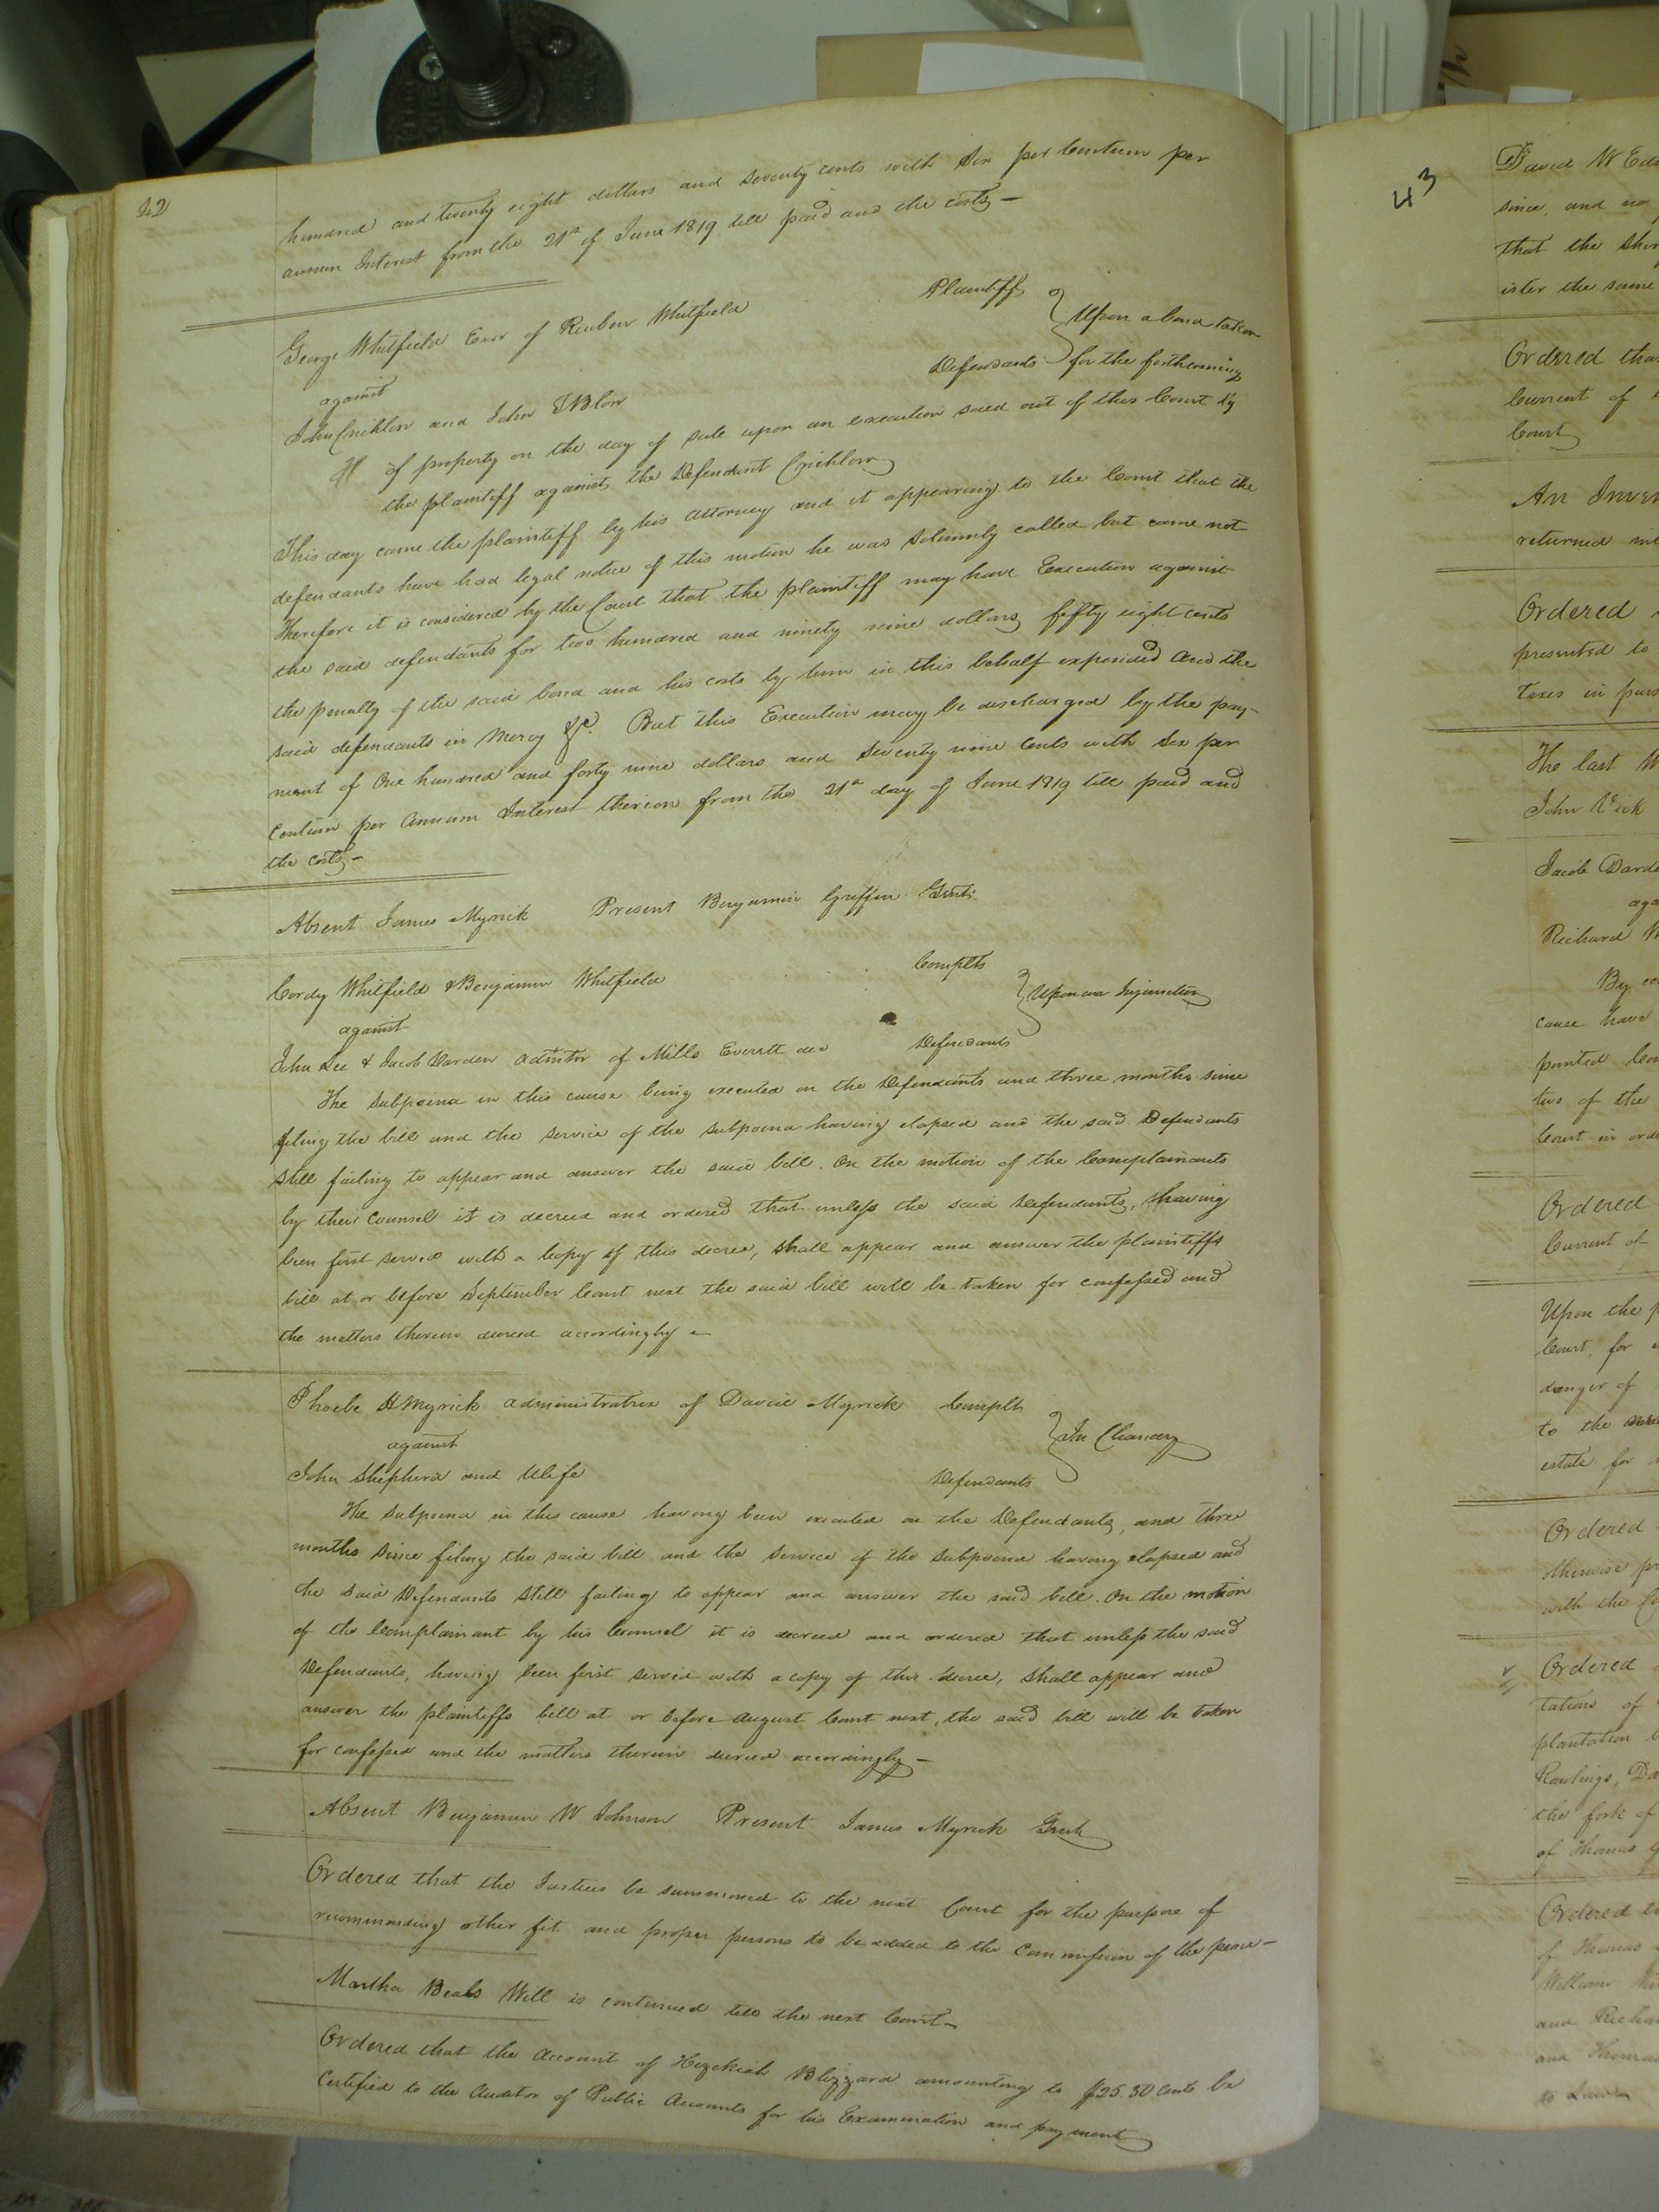 42
hundred and twenty eight dollars and Seventy cents with Six per Centum per
annum Interest from the 21st of June 1819 till paid and the costs —
George Whitfield Exor of Reuben Whitfield Plaintiff
against Upon a bond taken
John Crichlow and John T Blow Defendants for the forthcoming
of property on the day of sale upon an execution sued out of this Court by
the plaintiff against the Defendant Crichlow
This day came the plaintiff by his Attorney and it appearing to the Court that the
defendants have had legal notice of this motion he was Solemnly called but came not
Therefore it is considered by the Court that the plaintiff may have Execution against
the said defendants for two hundred and ninety nine dollars fifty eight cents
the penalty of the said bond and his costs by him in this behalf expended and the
said defendants in Mercy &c. But this Execution may be discharged by the pay-
ment of One hundred and forty nine dollars and Seventy nine Cents with Six per
Centum per Annum Interest thereon from the 21st day of June 1819 till paid and
the costs —
Absent James Myrick Present Benjamin Griffin Gent.
Cordy Whitfield & Benjamin Whitfield Complts
against Upon an Injunction
John Lee & Jacob Darden admtor of Mills Everett dec Defendants
The Subpoena in this cause being executed on the Defendants and three months since
filing the bill and the service of the subpoena having elapsed and the said Defendants
still failing to appear and answer the said bill. On the motion of the Complainants
by their Counsel it is decreed and ordered that unless the said Defendants, having
been first served with a Copy of this decree, shall appear and answer the plaintiffs
bill at or before September Court next the said bill will be taken for confessed and
the matters therein decreed accordingly —
Phoebe H Myrick administratrix of David Myrick Complt
against In Chancery
John Shepherd and Wife Defendants
The Subpoena in this cause having been executed on the Defendants, and three
months since filing the said bill and the service of the subpoena having elapsed and
the said Defendants still failing to appear and answer the said bill. On the motion
of the Complainant by his Counsel it is decreed and ordered that unless the said
Defendants, having been first served with a copy of this decree, shall appear and
answer the plaintiffs bill at or before August Court next, the said bill will be taken
for confessed and the matters therein decreed accordingly —
Absent Benjamin W Johnson Present James Myrick Gent
Ordered that the Justices be summoned to the next Court for the purpose of
recommending other fit and proper persons to be added to the Commission of the peace —
Martha Beals Will is continued till the next Court —
Ordered that the Account of Hezekiah Blizzard amounting to $25.50 Cents be
Certified to the Auditor of Public Accounts for his Examination and payment
43
David W Ed
since, and no
that the Sher
ister the same
Ordered tha
Current of
Court
An Inven
returned
Ordered
presented to
taxes in
The last W
John Vick
Jacob Dard
aga
Richard W
By
cause have
pointed
two of the
Court in ord
Ordered
Current of
Upon the
Court, for
danger of
to the
estate for
Ordered
otherwise
with the
Ordered
tations of
plantation
Rawlings, Da
the fork of
of Thomas
Ordered
of Thomas
William
and Richa
and Thomas
to Law